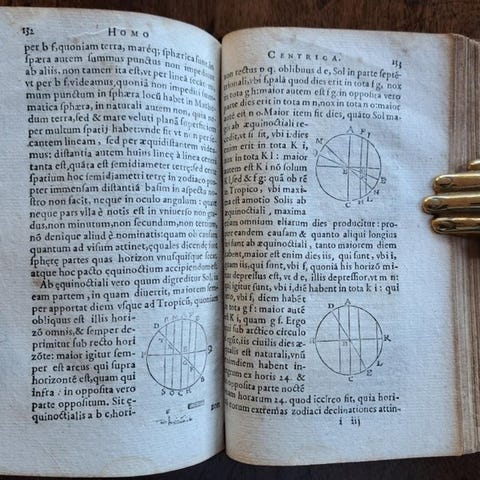 132 HOMO
per b f, quoniam terra, maréq; sphærica sunt, in
spæra autem summus punctus non impeditur
ab aliis, non tamen ita est, vt per lineã
vt per b f, videamus, quoniã non impedit
mum punctum in sphæra locũ habet in Mathe
matica sphæra, in naturali autem non, quia
dum terra, sed & mare veluti planã superficiem
per multum spatij habet: vnde fit vt
cantem lineam, sed per æquidistantem vide
mus: distantia autem huius lineę à linea
tanta est, quãta est semidiameter terrę; sed
spatium hoc semidiametri terræ in zodiaco
per immensam distantiã basim in aspectu no
stro non facit, neque in oculo angulum, vnde
neque pars vlla è notis est in vniuerso non gra
dus, non minutum, non secundum, non tertium,
nõ denique aliud è nominatis: quam ob causam
quantum ad visum attinet, ęquales dicendę sunt
spherę partes quas horizon vnusquisque secat,
atque hoc pacto equinoctium accipiendum est
Ab equinoctiali vero quum digreditur Sol, in
eam partem, in quam diuertit, maiorem
per apportat diem vsque ad Tropicũ, quoniam
obliquus est illis hori
zõ omnis, & semper de
primitur sub recto hori
zõte: maior igitur sem
per est arcus qui supra
horizonté est, quam qui
infra in opposita vero
parte oppositum. Sit ę-
quinoctialis a b c, hori-
zon
CENTRICA. 133
non rectus p q. obliquus d e, Sol in parte septẽ-
trionali, vbi f, palã quod dies erit in tota f g, nox
in tota g h: maior autem est f g: in opposita vero
parte dies erit in tota m n, nox in tota n o: maior
aute est n o. Maior item fit dies, quãto Sol ma-
gis ab æquinoctiali re-
cedit, vt si sit, vbi i: dies
enim erit in tota K i,
nox in tota K l: maior
autem est K i nõ solum
K l, sed & f g: quã ob rẽ
in Tropico, vbi maxi-
ma est amotio Solis ab
æquinoctiali, maxima
etiam omnium eliarum dies producitur: pro-
pter eandem causam & quanto aliqui longius
sunt ab æquinoctiali, tanto maiorem diem
habent, maior est enim dies iis, qui sunt, vbi i,
quam iis, qui sunt, vbi f, quonia his horizõ mi-
nus depressus est, vt d e, illis depressior, vt m n:
igitur qui, vbi i, diẽ habent in tota k i: qui
vero, vbi f, diem habẽt
in tota g f: maior autẽ
est K i, quam g f. Ergo
sub arctico circulo
est, iis ciuilis dies æ-
qualis est naturali, vnũ
enim diem habent in-
tegrum ex horis 24. &
in opposita parte nocté
vnam horarum 24. quod iccirco fit, quia hori-
zõ eorum extremas zodiaci declinationes attin-
i iij